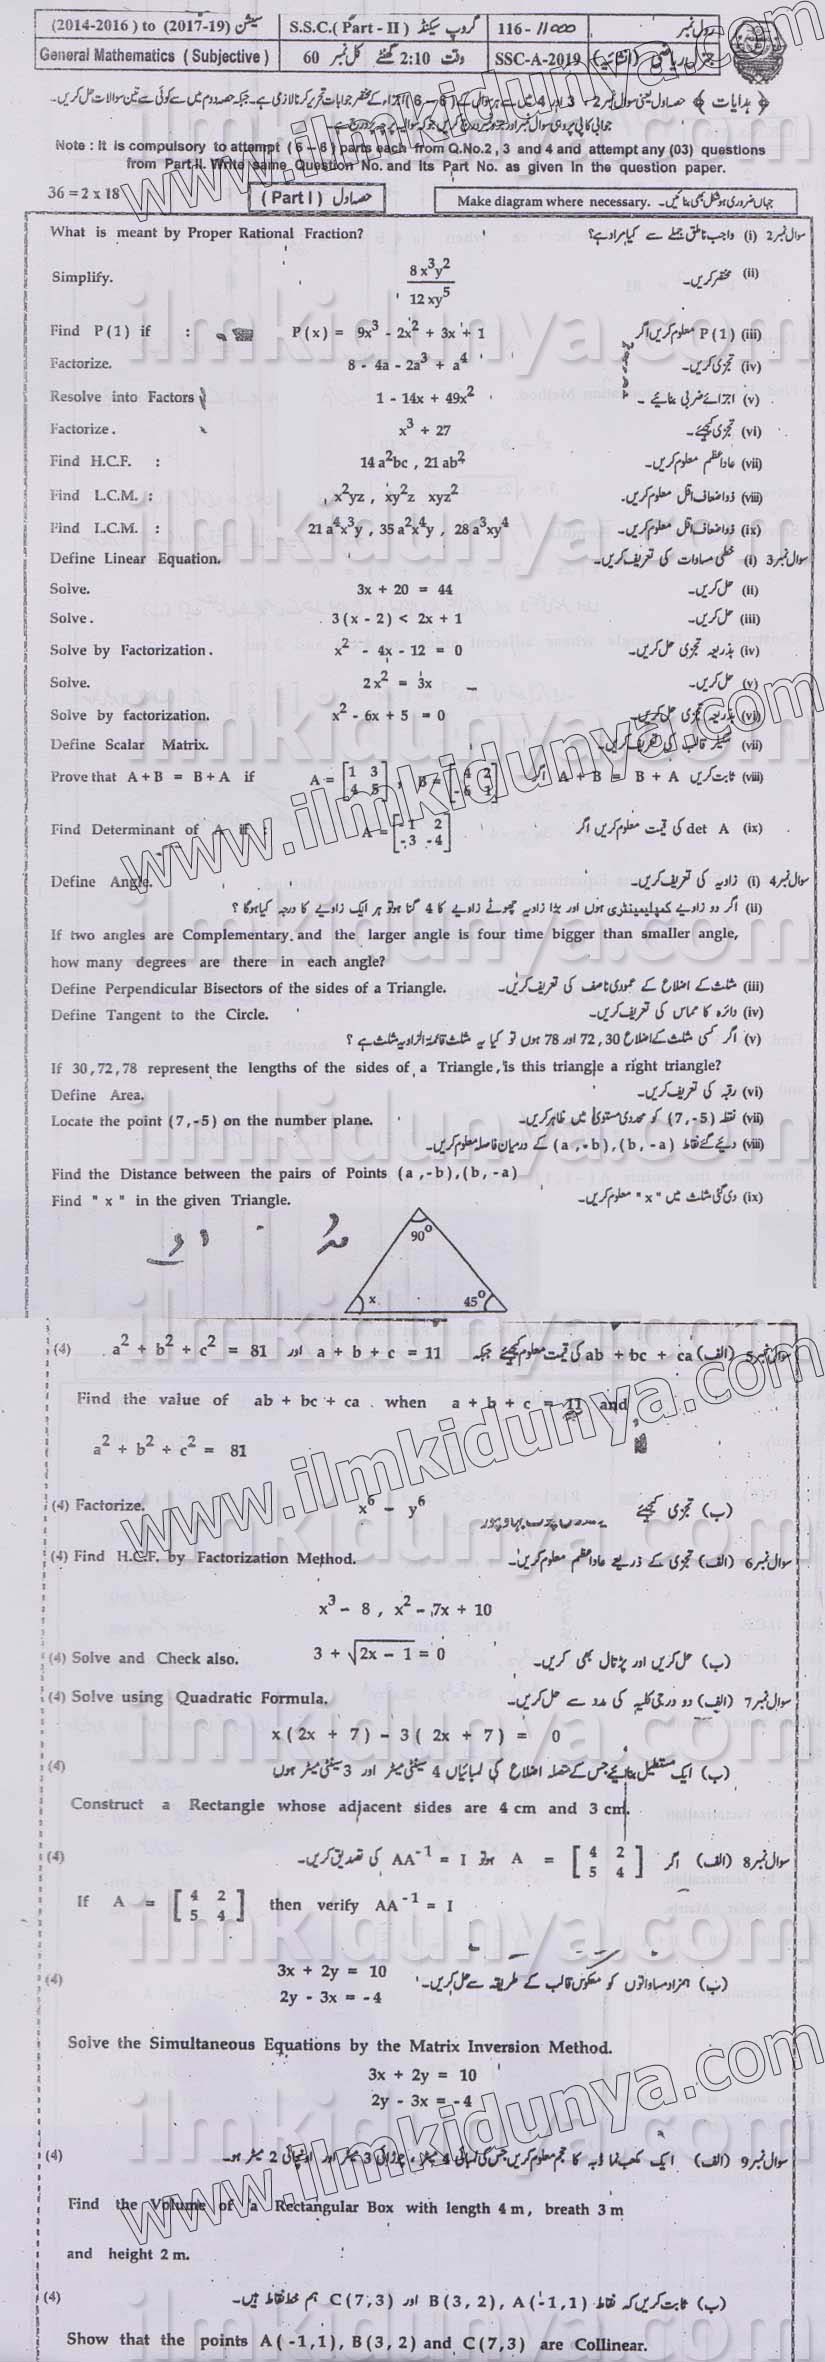 (2014-2016) to (2017-19) سیشن S.S.C.( Part - II ) گروپ سیکنڈ 116- 11000 رول نمبر
General Mathematics ( Subjective ) 60 کل نمبر 2:10 گھنٹے وقت SSC-A-2019 جنرل ریاضی (انشائیہ)
Note : It is compulsory to attempt ( 6 – 6 ) parts each from Q.No.2 , 3 and 4 and attempt any (03) questions
from Part II. Write same Question No. and Its Part No. as given in the question paper.
36 = 2 x 18 (Part I) حصہ اول Make diagram where necessary. جہاں ضروری ہو شکل بھی بنائیں۔
What is meant by Proper Rational Fraction? سوال نمبر 2 (i) واجب ناطق جملے سے کیا مراد ہے؟
Simplify. 8x³y² / 12xy⁵ (ii) مختصر کریں۔
Find P(1) if : P(x) = 9x³ - 2x² + 3x + 1 (iii) P(1) معلوم کریں اگر
Factorize. 8 - 4a - 2a³ + a⁴ (iv) تجزی کریں۔
Resolve into Factors 1 - 14x + 49x² (v) اجزائے ضربی بنائیے ۔
Factorize . x³ + 27 (vi) تجزی کیجئے۔
Find H.C.F. : 14 a²bc , 21 ab² (vii) عاد اعظم معلوم کریں۔
Find L.C.M. : x²yz , xy²z xyz² (viii) ذواضعاف اقل معلوم کریں۔
Find L.C.M. : 21 a⁴x³y , 35 a²x⁴y , 28 a³xy⁴ (ix) ذواضعاف اقل معلوم کریں۔
Define Linear Equation. سوال نمبر 3 (i) خطی مساوات کی تعریف کریں۔
Solve. 3x + 20 = 44 (ii) حل کریں۔
Solve . 3 ( x - 2 ) < 2x + 1 (iii) حل کریں۔
Solve by Factorization . x² - 4x - 12 = 0 (iv) بذریعہ تجزی حل کریں۔
Solve. 2x² = 3x (v) حل کریں۔
Solve by factorization. x² - 6x + 5 = 0 (vi) بذریعہ تجزی حل کریں۔
Define Scalar Matrix. (vii) سکیلر قالب کی تعریف کریں۔
Prove that A + B = B + A if A = [1 3 / 4 5] , B = [4 2 / -6 1] اگر A + B = B + A ثابت کریں (viii)
Find Determinant of A if : A = [-1 2 / -3 -4] (ix) det A کی قیمت معلوم کریں اگر
Define Angle. سوال نمبر 4 (i) زاویہ کی تعریف کریں۔
(ii) اگر دو زاویے کمپلیمینٹری ہوں اور بڑا زاویہ چھوٹے زاویے کا 4 گنا ہو تو ہر ایک زاویے کا درجہ کیا ہوگا ؟
If two angles are Complementary and the larger angle is four time bigger than smaller angle,
how many degrees are there in each angle?
Define Perpendicular Bisectors of the sides of a Triangle. (iii) مثلث کے اضلاع کے عمودی ناصف کی تعریف کریں۔
Define Tangent to the Circle. (iv) دائرہ کا مماس کی تعریف کریں۔
(v) اگر کسی مثلث کے اضلاع 30 ,72 اور 78 ہوں تو کیا یہ مثلث قائمۃ الزاویہ مثلث ہے ؟
If 30 , 72 , 78 represent the lengths of the sides of a Triangle, is this triangle a right triangle?
Define Area. (vi) رقبہ کی تعریف کریں۔
Locate the point ( 7 , -5 ) on the number plane. (vii) نقطہ ( 7 , -5 ) کو محددی مستوی میں ظاہر کریں۔
(viii) دیئے گئے نقاط ( a , -b ) , ( b , -a ) کے درمیان فاصلہ معلوم کریں۔
Find the Distance between the pairs of Points ( a , -b ) , ( b , -a )
Find " x " in the given Triangle. (ix) دی گئی مثلث میں " x " معلوم کریں۔
90°
x 45°
(4) a² + b² + c² = 81 اور a + b + c = 11 جبکہ ab + bc + ca کی قیمت معلوم کیجئے (الف) سوال نمبر 5
Find the value of ab + bc + ca when a + b + c = 11 and
a² + b² + c² = 81
(4) Factorize. x⁶ – y⁶ (ب) تجزی کیجئے
(4) Find H.C.F. by Factorization Method. سوال نمبر 6 (الف) تجزی کے ذریعے عاد اعظم معلوم کریں۔
x³ – 8 , x² – 7x + 10
(4) Solve and Check also. 3 + √(2x – 1) = 0 (ب) حل کریں اور پڑتال بھی کریں۔
(4) Solve using Quadratic Formula. سوال نمبر 7 (الف) دو درجی کلیہ کی مدد سے حل کریں۔
x ( 2x + 7 ) – 3 ( 2x + 7 ) = 0
(4) (ب) ایک مستطیل بنائیے جس کے متصلہ اضلاع کی لمبائیاں 4 سینٹی میٹر اور 3 سینٹی میٹر ہوں
Construct a Rectangle whose adjacent sides are 4 cm and 3 cm.
(4) سوال نمبر 8 (الف) اگر A = [4 2 / 5 4] ہو تو AA⁻¹ = I کی تصدیق کریں۔
If A = [4 2 / 5 4] then verify AA⁻¹ = I
(4) 3x + 2y = 10 (ب) ہمزاد مساواتوں کو معکوس قالب کے طریقہ سے حل کریں۔
2y - 3x = -4
Solve the Simultaneous Equations by the Matrix Inversion Method.
3x + 2y = 10
2y - 3x = -4
(4) سوال نمبر 9 (الف) ایک مکعب نما ڈبہ کا حجم معلوم کریں جس کی لمبائی 4 میٹر ، چوڑائی 3 میٹر اور اونچائی 2 میٹر ہو۔
Find the Volume of a Rectangular Box with length 4 m , breath 3 m
and height 2 m.
(4) (ب) ثابت کریں کہ نقاط A ( -1 , 1 ) , B ( 3 , 2 ) اور C ( 7 , 3 ) ہم خط نقاط ہیں۔
Show that the points A ( -1 , 1 ) , B ( 3 , 2 ) and C ( 7 , 3 ) are Collinear.
www.ilmkidunya.com